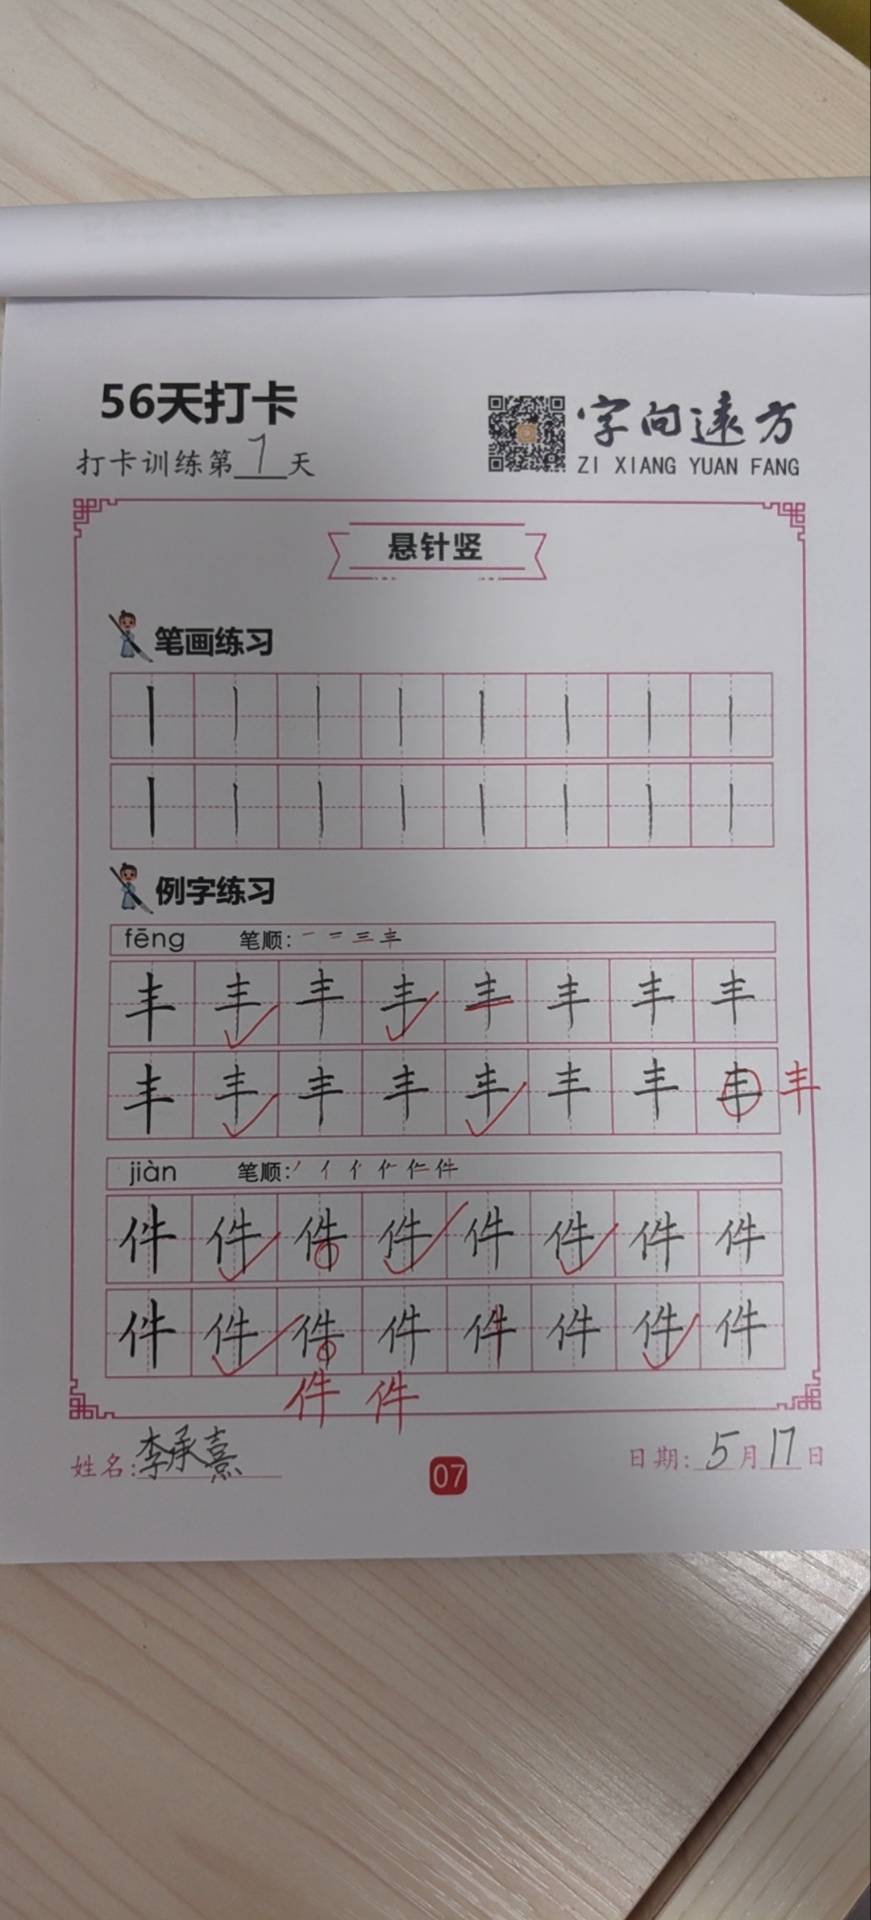 56天打卡
字向远方
打卡训练第7天
ZI XIANG YUAN FANG
悬针竖
笔画练习
丨 丨 丨 丨 丨 丨 丨 丨
丨 丨 丨 丨 丨 丨 丨 丨
例字练习
fēng 笔顺: 一 二 三 丰
丰 丰 丰 丰 丰 丰 丰 丰
丰 丰 丰 丰 丰 丰 丰 丰 丰
jiàn 笔顺: 丿 亻 件
件 件 件 件 件 件 件 件
件 件 件 件 件 件 件 件
件 件
姓名:李承熹
07
日期:5月17日